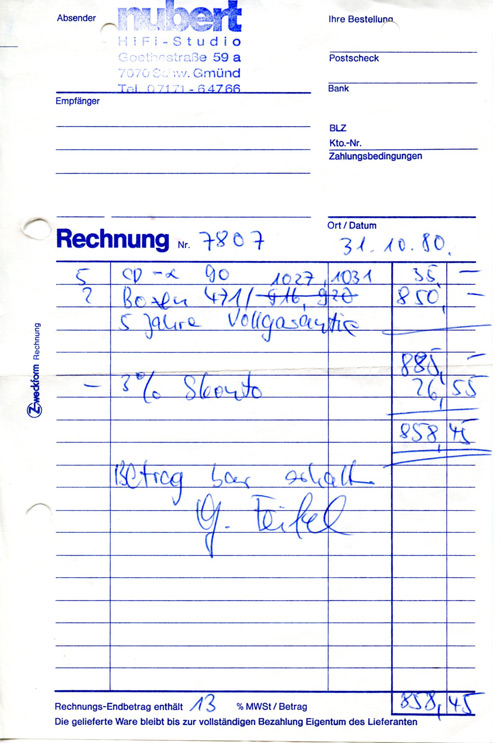 Absender
nubert
HiFi-Studio
Goethestraße 59 a
7070 Schw. Gmünd
Tel. 07171-64766
Ihre Bestellung
Postscheck
Bank
Empfänger
BLZ
Kto.-Nr.
Zahlungsbedingungen
Ort / Datum
Rechnung Nr. 7807 31.10.80.
5 CD-α 90 1027, 1031 35, —
2 Boxen 471/ 850, —
5 Jahre Vollgarantie
885, —
— 3% Skonto 26,55
858,45
Betrag bar erhalt.
Zweckform Rechnung
Rechnungs-Endbetrag enthält 13 % MWSt / Betrag 858,45
Die gelieferte Ware bleibt bis zur vollständigen Bezahlung Eigentum des Lieferanten